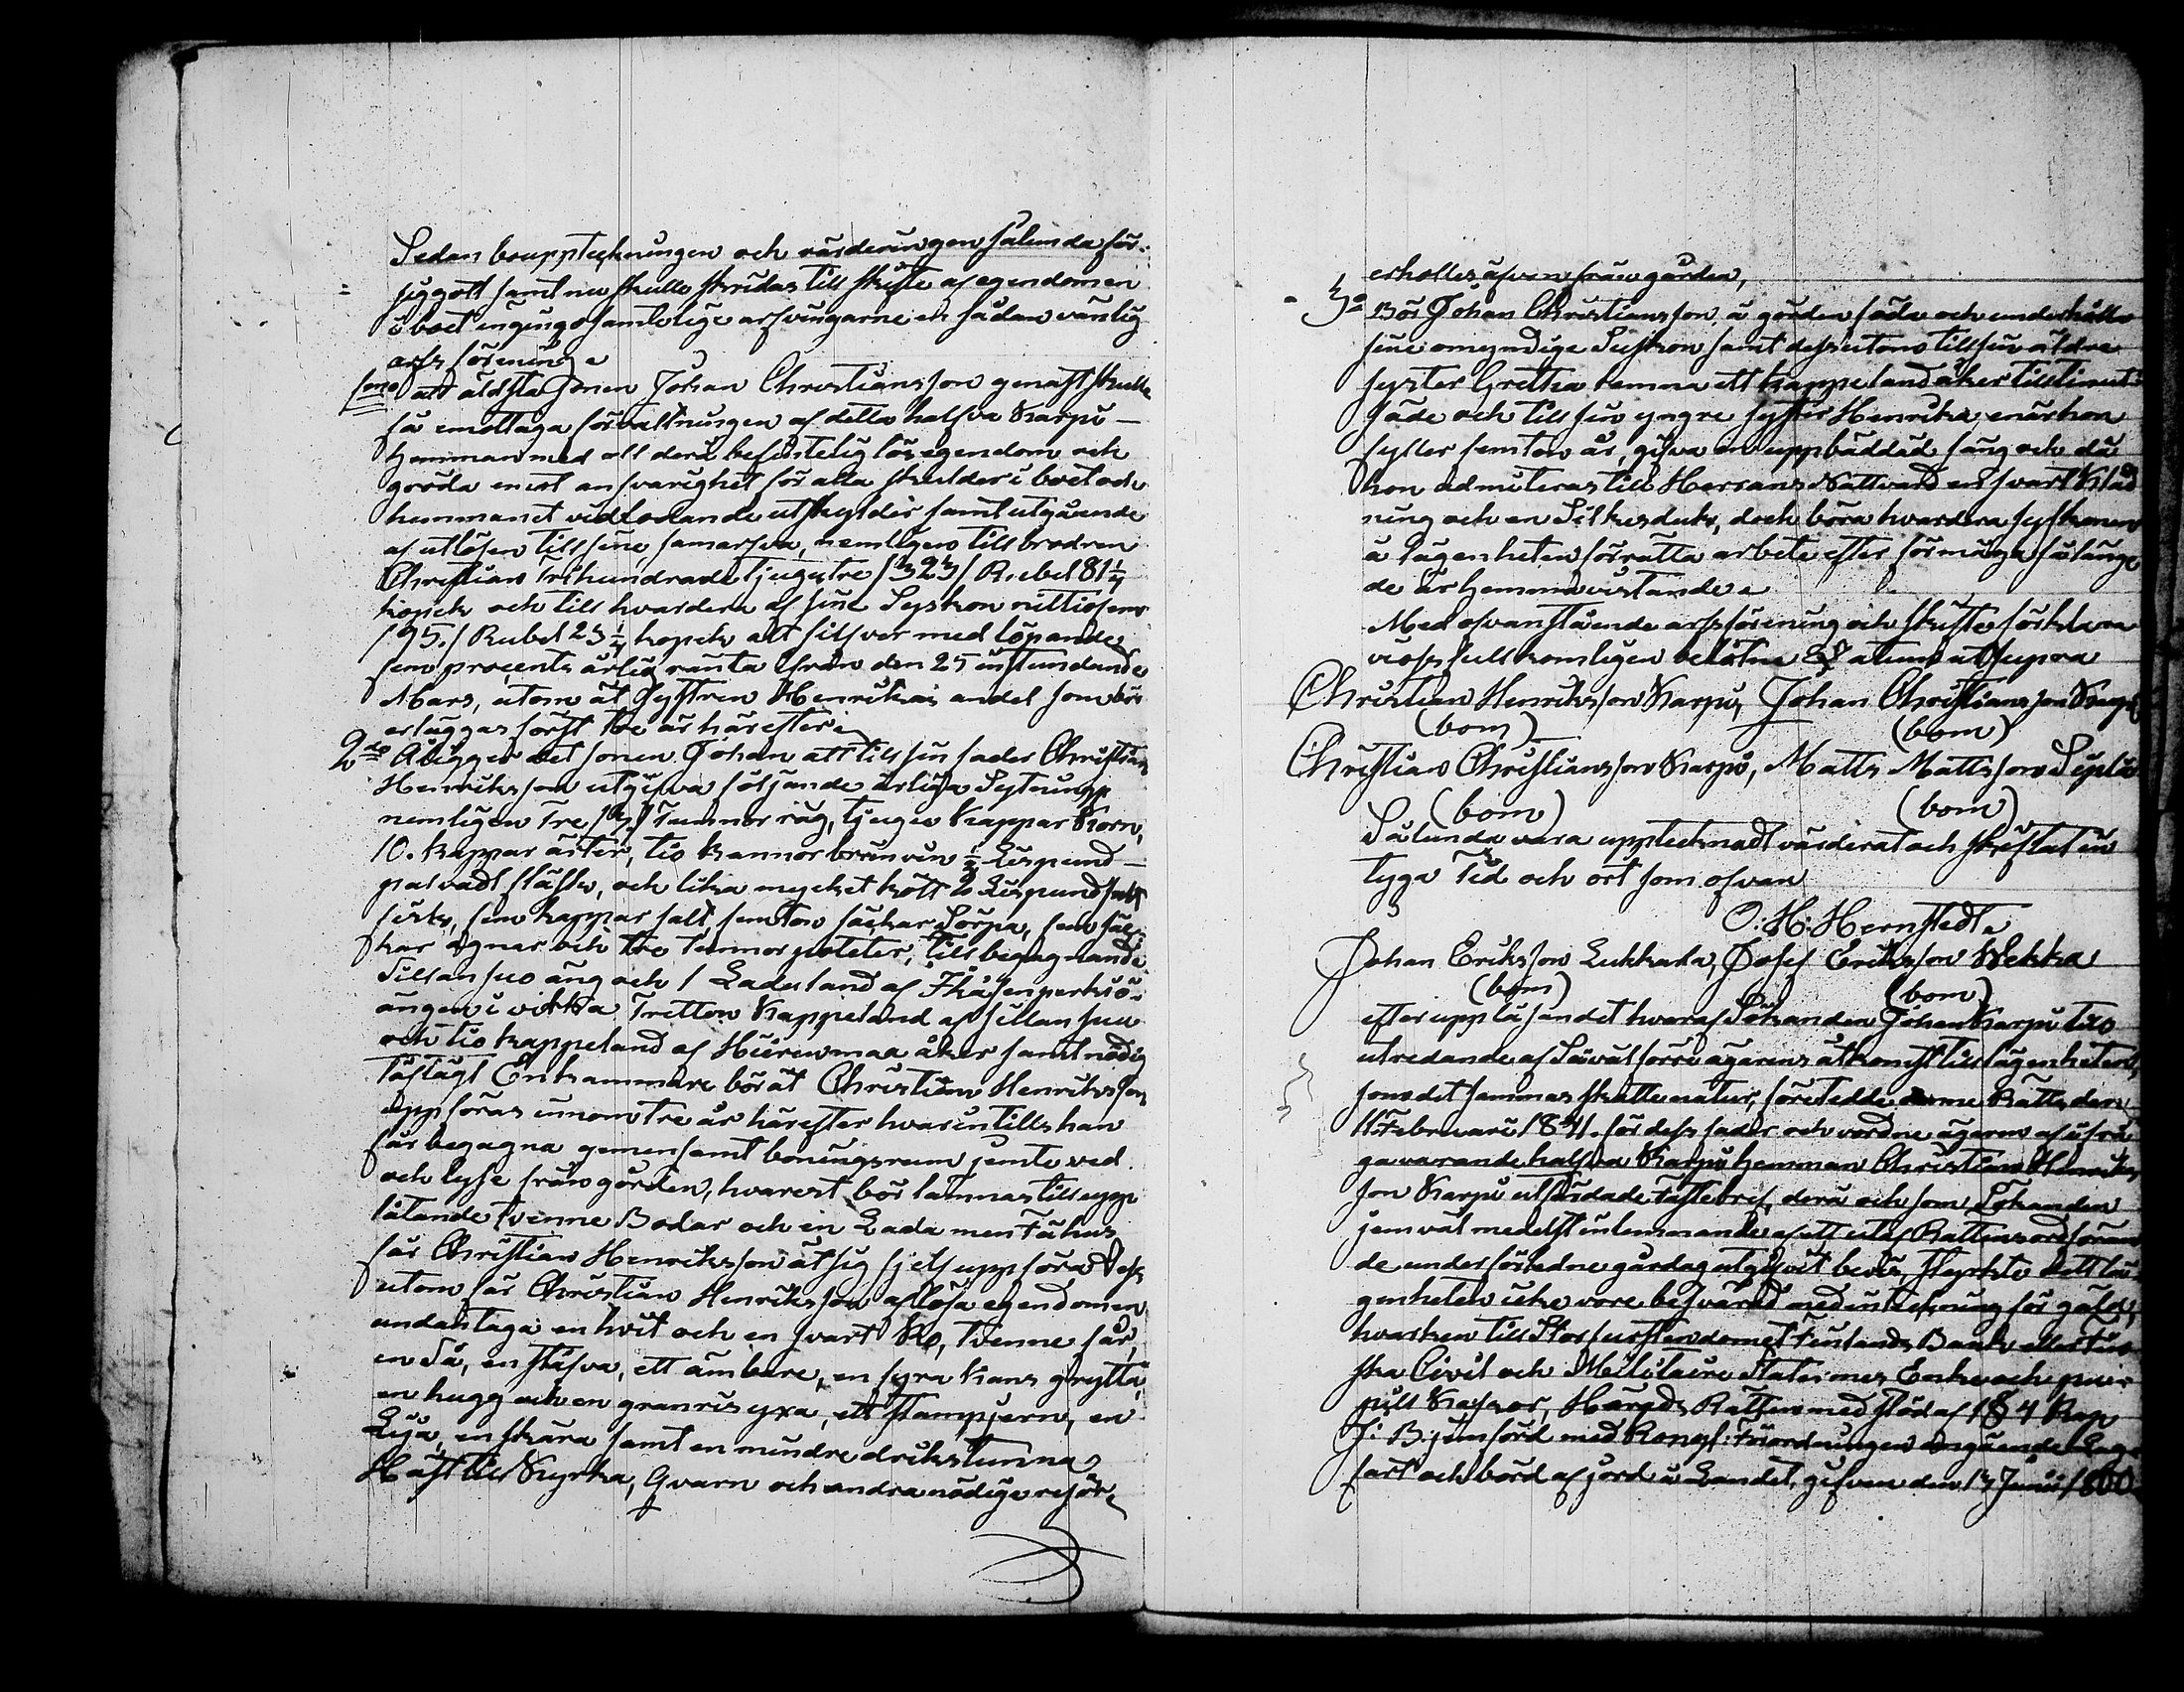 Sedan bouppteckningen och värderingen sålunda för-
siggått samt nu skulle skridas till skifte af egendomen
i boet ingingo samtelige arfvingarne en sådan vänlig
arfs förening
1mo att äldsta Sonen Johan Christiansson genast skulle
få emottaga förvaltningen af detta halfva Karpu
hemman med all derå befintelig lösegendom och
gröda emot ansvarighet för alla skulder i boet och
hemmanet vidlådande utskylder samt utgående
af utlösen till sine samarfva, nemligen till brodren
Christian Trehundrade tjugutre /323/ Rubel 81 1/4
kopek och till hvardera af sine Syskon nittiofem
/95./ Rubel 23 1/4 kopek allt silfver med löpande
fem procents årlig ränta ifrån den 25 instundande
Mars, utom åt Systren Henrikas andel som bör
erläggas först tre år härefter
2do Åligger det sonen Johan att till sin fader Christian
Henriksson utgifva följande årliga Sytning
nemligen Tre /3/ Tunnor råg, tjugu Kappar Korn,
10. kappar ärter, tio kannor bränvin 1/2 Lispund
palvadt fläsk, och lika mycket kött 2 Lispund salt
fisk, fem kappar salt, femton säckar Sörpa, fem säc-
kar agnar och tre tunnor poteter, till begagnande
Sillansuo äng och 1 Ladesland af
ängen i vikka Tretton Kappeland af Sillansuu
och tio kappeland af Hiirenmaa åker samt nödig
Taflagt Enkammare bör åt Christian Henriksson
uppföras innom tre år härefter hvarintills han
får begagna gemensamt boningsrum jemte ved
och lyse från gården, hvarest bör lämnas till upp
låtande tvenne Bodar och en Lada men Fähus
får Christian Henriksson åt sig sjelf uppföra Dess
utom får Christian Henriksson af lösa egendomen
undantaga en hvit och en svart Ko, tvenne får,
en Så, en stäfva, ett ämbare, en fyra Kans grytta,
en hugg och en granris yxa, ett stampjern, en
Lija, en skära samt en mindre drickstunna
Häst till Kyrka, Qvarn och andra nödiga resor
erhålles äfven från gården,
3o Bör Johan Christiansson å gården föda och underhålla
sine omyndige Syskon samt dessutom till sin äldre
syster Gretha lemna ett kappeland åker till linut-
säde och till sin yngre syster Henrika, enär hon
fyller femton år, gifva en uppbäddad säng och då
hon admiteras till Herrans Nattvard en svart Kläd
ning och en Silkesduk, dock böra hvardera syskonen
å lägenheten förrätta arbete efter förmåga så länge
de är hemmavistande
Med ofvanstående arfsförening och skifte förklara
vi oss fullkomligen belåtne Datum ut supra
Christian Henriksson Karpu, Johan Christiansson Karpu
(bom) (bom)
Christian Christiansson Karpu, Matts Mattsson Sipilä
(bom) (bom)
Sålunda vara upptecknadt värderat och skiftat in
tyga Tid och ort som ofvan
O. H. Hernstedt
Johan Eriksson Lukkala, Josef Eriksson Wekka
(bom) (bom)
efter uppläsandet hvaraf Sökanden Johan Karpu till
utredande af Såväl förre ägarens åtkomst till lägenheten,
som det sammas skatte natur, företedde denne Rätts den
11 Februari 1841. för dess fader och vordne ägaren af ifrå
gavarande halfva Karpu hemman Christian Henriks
son Karpu utfärdade Fastebref, derå och som Sökanden
jemväl medelst inlemnande af ett utaf Rättens ordföran
de under förledne gårdag utgifvit bevis, styrkte att lä-
genheten icke vore besvärad med inteckning för gäld,
hvarken till Storfurstendomet Finlands Bank eller Fin
ska Civil och Militaire Staternes Enke och pu-
pill Kassor, Härads Rätten med stöd af 1 § 4 Kap
J: B: jemförd med Kongl: Förordningen angående Lag-
fart och börd af jord å Landet, gifven den 13 Junii 1800